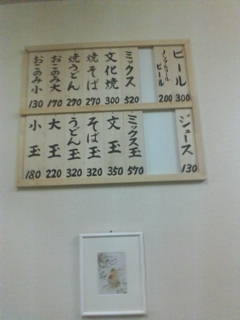 ビール 300
ノンアルコールビール 200
ミックス 520
文化焼 300
焼そば 270
焼うどん 270
おこのみ大 170
おこのみ小 130
ジュース 130
ミックス玉 570
文玉 350
そば玉 320
うどん玉 320
大玉 220
小玉 180